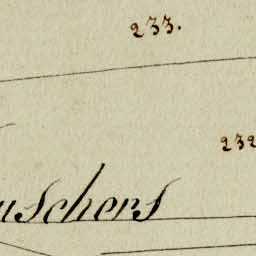 233.
232
uschers